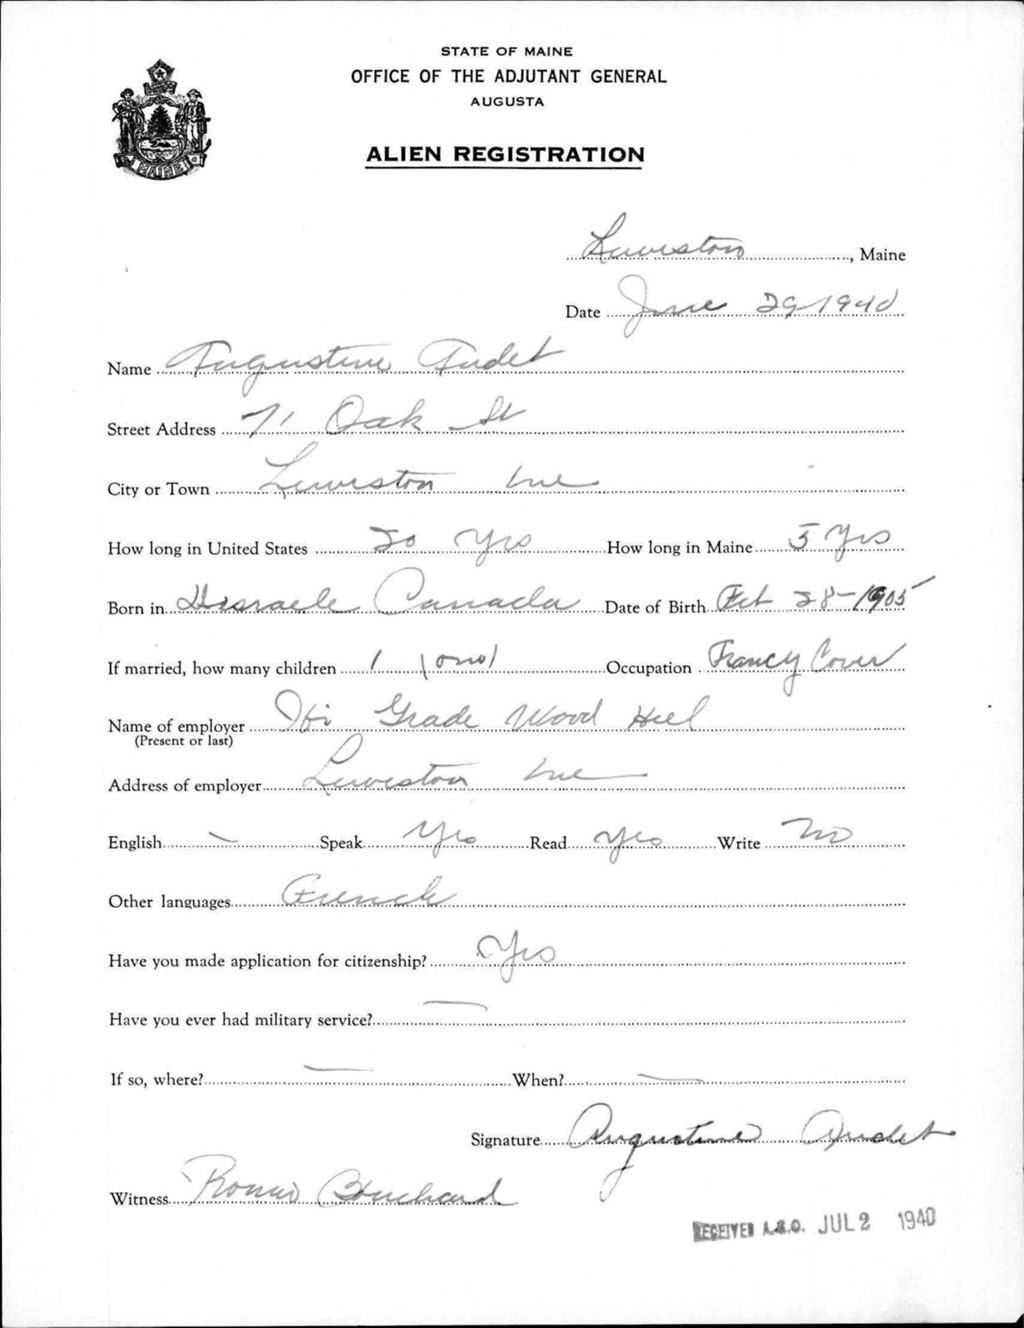 STATE OF MAINE
OFFICE OF THE ADJUTANT GENERAL
AUGUSTA
MAINE
ALIEN REGISTRATION
Lewiston, Maine
Date June 29-1940
Name Augustine Audet
Street Address 71 Oak St
City or Town Lewiston Me
How long in United States 20 Yrs How long in Maine 5 Yrs
Born in Disraele Canada Date of Birth 28-1905
If married, how many children 1 (one) Occupation Fancy Cover
Name of employer Hi Grade Wood Heel
(Present or last)
Address of employer Lewiston Me
English - Speak Yes Read Yes Write No
Other languages French
Have you made application for citizenship? Yes
Have you ever had military service? —
If so, where? — When? —
Signature Augustine Audet
Witness Romeo Bouchard
RECEIVED A.G.O. JUL 2 1940